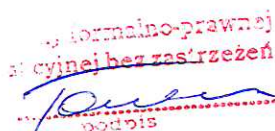 formalno-prawnej
cyjnej bez zastrzeżeń
podpis